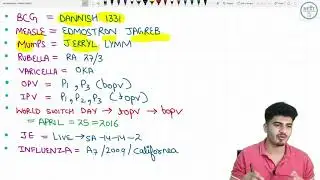 • BCG = DANNISH 1331
• MEASLE = EDMOSTRON JAGREB
• MUMPS = JERRYL LYMM
• RUBELLA = RA 27/3
• VARICELLA = OKA
• OPV = P1, P3 (bOPV)
• IPV = P1, P2, P3 (tOPV)
• WORLD SWITCH DAY → tOPV → bOPV
= APRIL = 25 = 2016
• JE = LIVE → SA-14-14-2
• INFLUENZA = A7/2009/californea